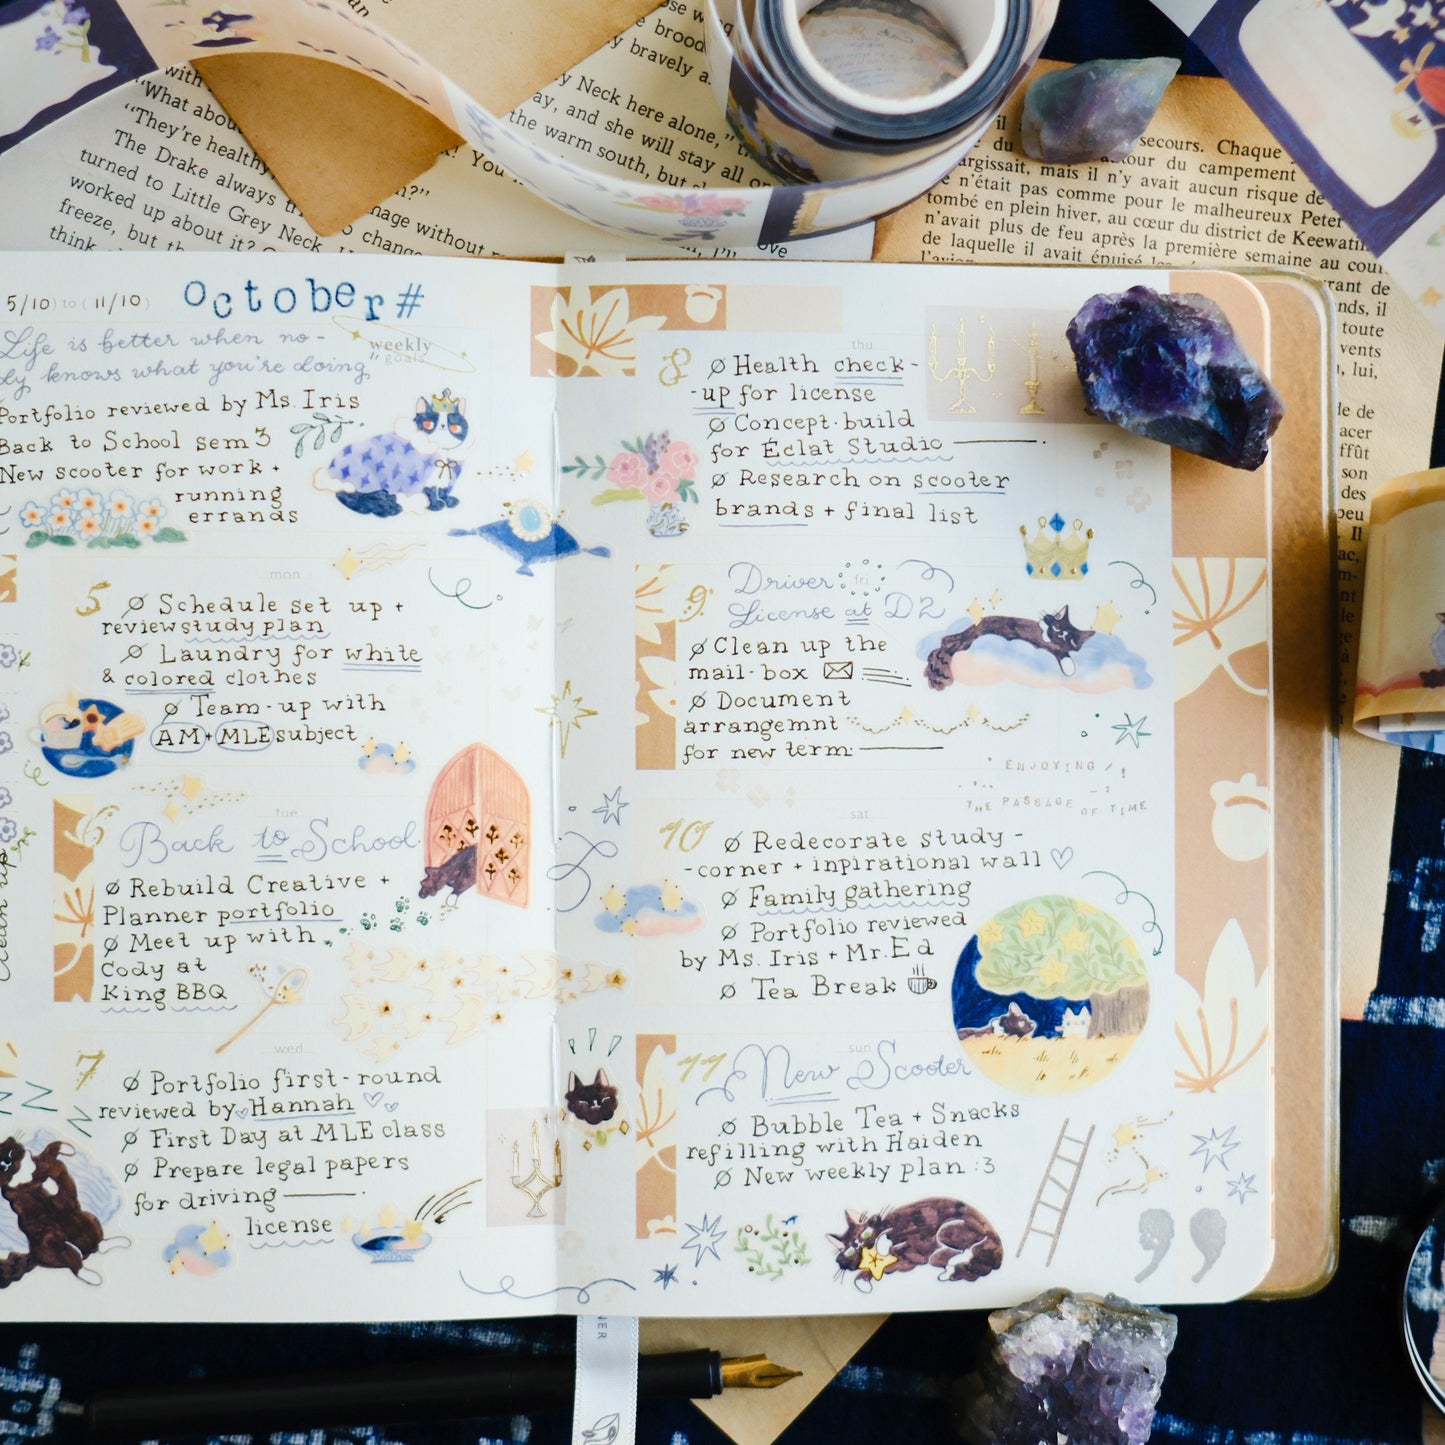 with
"What about
"They're healthy,
The Drake always
turned to Little Grey Neck.
worked up about it?
freeze, but
think
brood
bravely
y Neck here alone,"
ay, and she will stay all
the warm south, but
You
change without
il
secours. Chaque
du
autour du campement
argissait, mais il n'y avait aucun risque de
n'était pas comme pour le malheureux Peter
tombé en plein hiver, au cœur du district de Keewatin
n'avait plus de feu après la première semaine au cour
de laquelle il avait épuisé
toute
vents
lui,
son
des
5/10 to ( 11/10 )
October#
Life is better when no-
dy knows what you're doing"
weekly
goals
Portfolio reviewed by Ms. Iris
Back to School sem 3
New scooter for work +
running
errands
mon
5
Ø Schedule set up +
review study plan
Ø Laundry for white
& colored clothes
Ø Team-up with
AM + MLE subject
tue
6
Back to School
Ø Rebuild Creative +
Planner portfolio
Ø Meet up with
Cody at
King BBQ
wed
7
Ø Portfolio first-round
reviewed by Hannah
Ø First Day at MLE class
Ø Prepare legal papers
for driving
license
thu
8
Ø Health check-
-up for license
Ø Concept·build
for Éclat Studio
Ø Research on scooter
brands + final list
fri
9
Driver
License at D2
Ø Clean up the
mail-box
Ø Document
arrangemnt
for new term
ENJOYING
THE PASSAGE OF TIME
sat
10
Ø Redecorate study-
-corner + inpirational wall
Ø Family gathering
Ø Portfolio reviewed
by Ms. Iris + Mr. Ed
Ø Tea Break
sun
11
New Scooter
Ø Bubble Tea + Snacks
refilling with Haiden
Ø New weekly plan :3